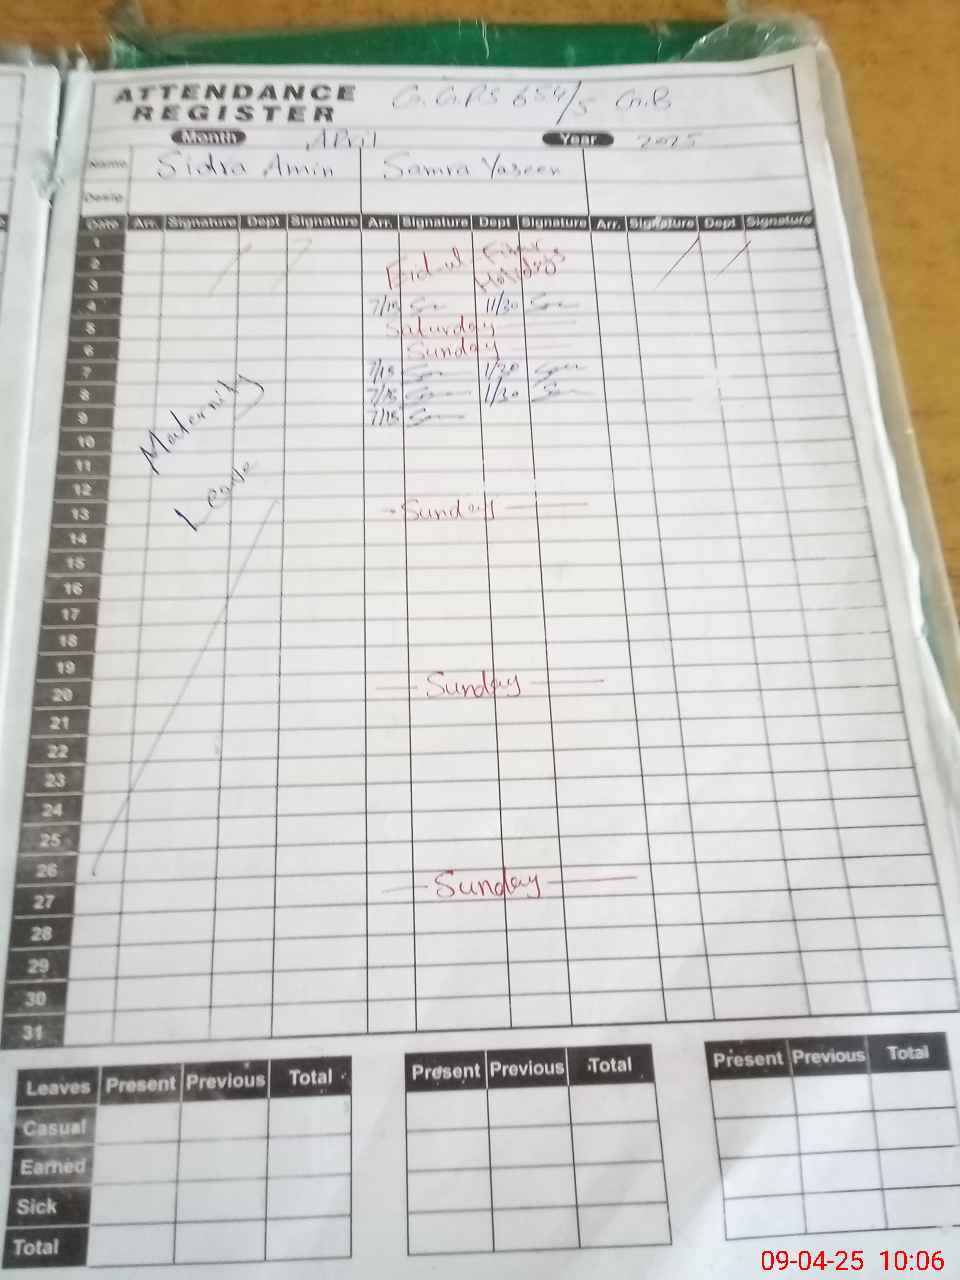 ATTENDANCE REGISTER G.G.P.S 654/5 G.B
Month April Year 2025
Name Sidra Amin Samra Yaseen
Desig
Date Arr. Signature Dept Signature Arr. Signature Dept Signature Arr. Signature Dept Signature
1
2 Eid-ul-Fitar
3 Holidays
4 7/15 11/30
5 Saturday
6 Sunday
7 7/15 1/30
8 7/15 1/30
9 7/15
Maternity
10
11
Leave
12
13 Sunday
14
15
16
17
18
19
20 Sunday
21
22
23
24
25
26
27 Sunday
28
29
30
31
Leaves Present Previous Total Present Previous Total Present Previous Total
Casual
Earned
Sick
Total
09-04-25 10:06